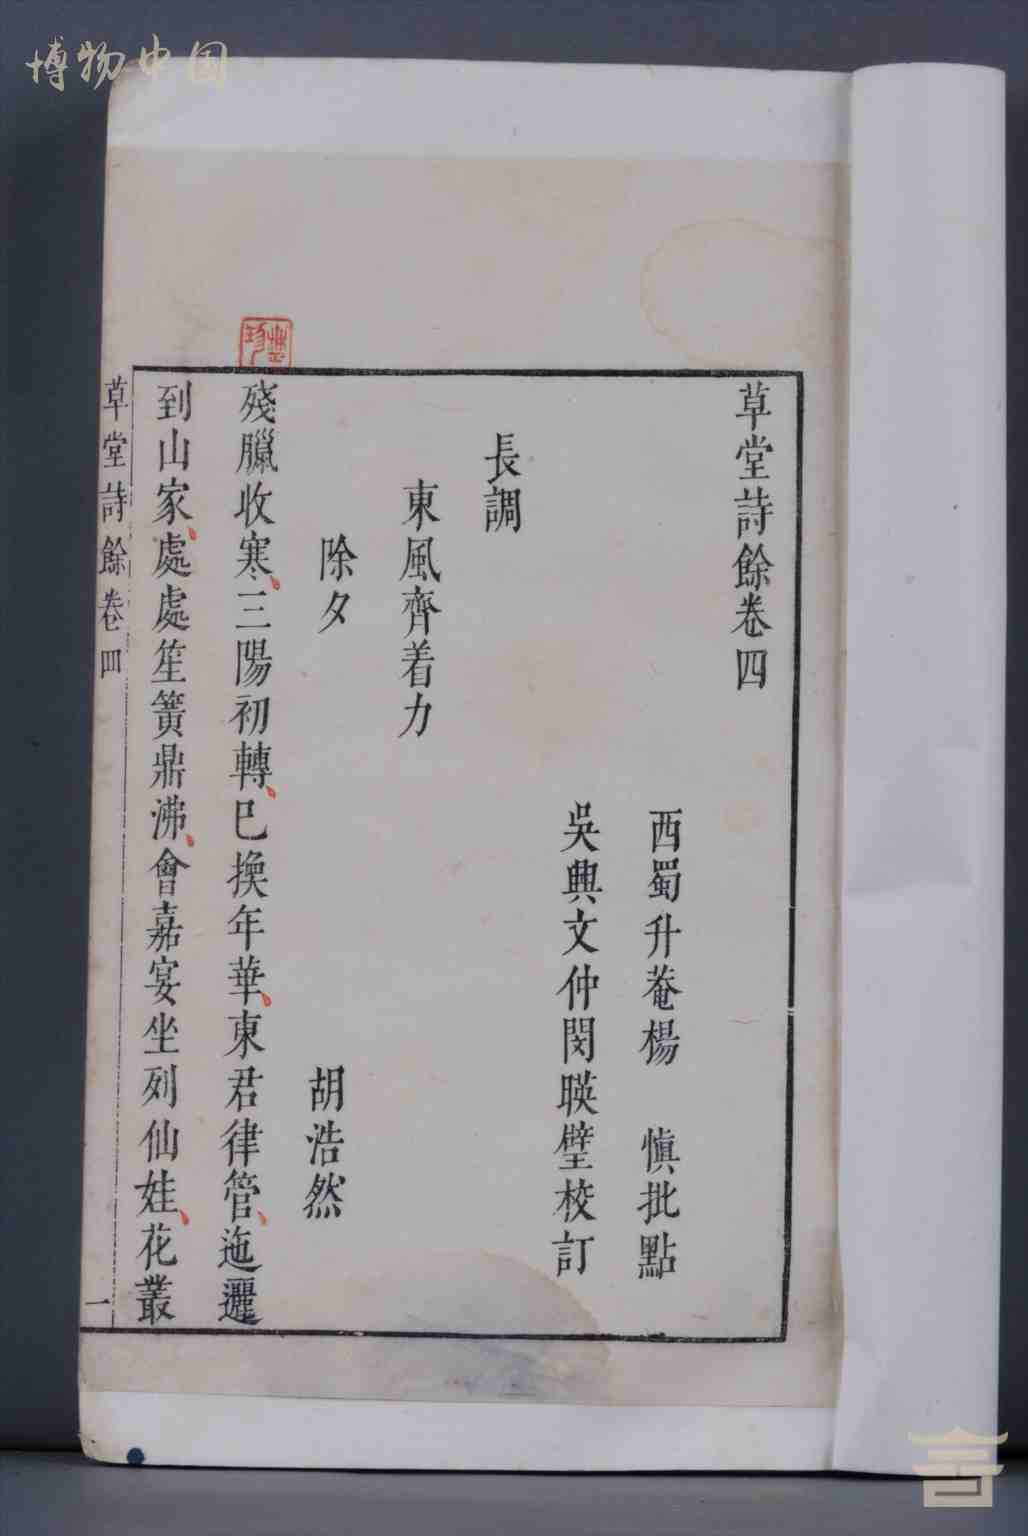 博物中国
草堂詩餘卷四
西蜀升菴楊 慎批點
吳興文仲閔暎璧校訂
長調
東風齊着力
除夕
胡浩然
殘臘收寒三陽初轉已換年華東君律管迤邐
到山家處處笙簧鼎沸會嘉宴坐列仙娃花叢
草堂詩餘卷四
一